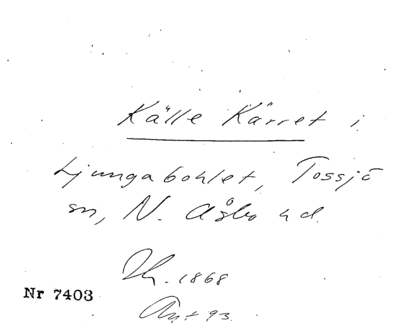 Källe Kärret i
Ljungabohlet, Tossjö
sn, N. Åsbo hd.
1868
Nr 7403
93